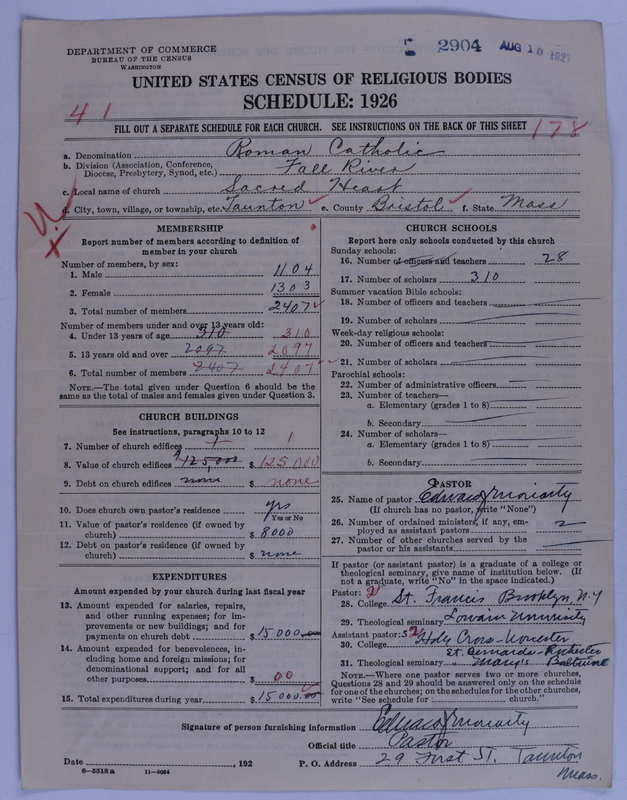 DEPARTMENT OF COMMERCE
BUREAU OF THE CENSUS
WASHINGTON
2904 AUG 16
UNITED STATES CENSUS OF RELIGIOUS BODIES
SCHEDULE: 1926
41
FILL OUT A SEPARATE SCHEDULE FOR EACH CHURCH. SEE INSTRUCTIONS ON THE BACK OF THIS SHEET
178
a. Denomination Roman Catholic
b. Division (Association, Conference, Diocese, Presbytery, Synod, etc.) Fall River
c. Local name of church Sacred Heart
d. City, town, village, or township, etc. Taunton e. County Bristol f. State Mass
MEMBERSHIP
Report number of members according to definition of
member in your church
Number of members, by sex:
1. Male 1104
2. Female 1303
3. Total number of members 2407
Number of members under and over 13 years old:
4. Under 13 years of age 310 310
5. 13 years old and over 2097 2097
6. Total number of members 2407 2407
NOTE.—The total given under Question 6 should be the
same as the total of males and females given under Question 3.
CHURCH BUILDINGS
See instructions, paragraphs 10 to 12
7. Number of church edifices 1 1
8. Value of church edifices $125,000 $ 125,000
9. Debt on church edifices none $ none
10. Does church own pastor's residence yes
Yes or No
11. Value of pastor's residence (if owned by
church) $ 8000
12. Debt on pastor's residence (if owned by
church) $ none
EXPENDITURES
Amount expended by your church during last fiscal year
13. Amount expended for salaries, repairs,
and other running expenses; for im-
provements or new buildings; and for
payments on church debt $ 15000
14. Amount expended for benevolences, in-
cluding home and foreign missions; for
denominational support; and for all
other purposes $ 00
15. Total expenditures during year $ 15000.00
CHURCH SCHOOLS
Report here only schools conducted by this church
Sunday schools:
16. Number of officers and teachers 28
17. Number of scholars 310
Summer vacation Bible schools:
18. Number of officers and teachers
19. Number of scholars
Week-day religious schools:
20. Number of officers and teachers
21. Number of scholars
Parochial schools:
22. Number of administrative officers
23. Number of teachers—
a. Elementary (grades 1 to 8)
b. Secondary
24. Number of scholars—
a. Elementary (grades 1 to 8)
b. Secondary
PASTOR
25. Name of pastor Edward J Moriarty
(If church has no pastor, write "None")
26. Number of ordained ministers, if any, em-
ployed as assistant pastors 2
27. Number of other churches served by the
pastor or his assistants
If pastor (or assistant pastor) is a graduate of a college or
theological seminary, give name of institution below. (If
not a graduate, write "No" in the space indicated.)
Pastor: 2
28. College St. Francis Brooklyn, N.Y
29. Theological seminary Louvain University
Assistant pastors: 2
30. College Holy Cross - Worcester
St. Bernards - Rochester
31. Theological seminary " Mary's Baltimore
NOTE.—Where one pastor serves two or more churches,
Questions 28 and 29 should be answered only on the schedule
for one of the churches; on the schedules for the other churches,
write "See schedule for church."
Signature of person furnishing information Edward J Moriarty
Official title Pastor
Date , 192 P. O. Address 29 First St. Taunton
Mass.
8—5518a 11—9024